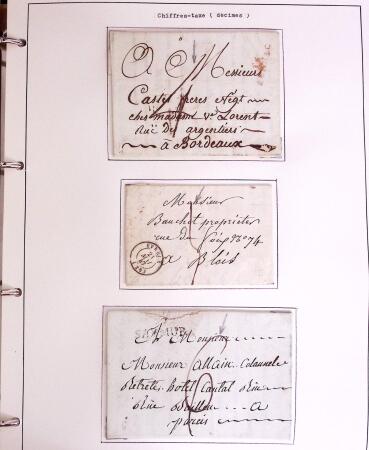 Chiffres-taxe ( décimes )
A Messieurs
Castes frères Négt
chés madame Ve Lorent
Ruë des argentiers
à Bordeaux
Monsieur
Bauchet propriéter
rue du No 74
a Blois
A Monsieur
Monsieur allain Colonnel
Retrette hotel Cantal
Rue Bouillou a
paris